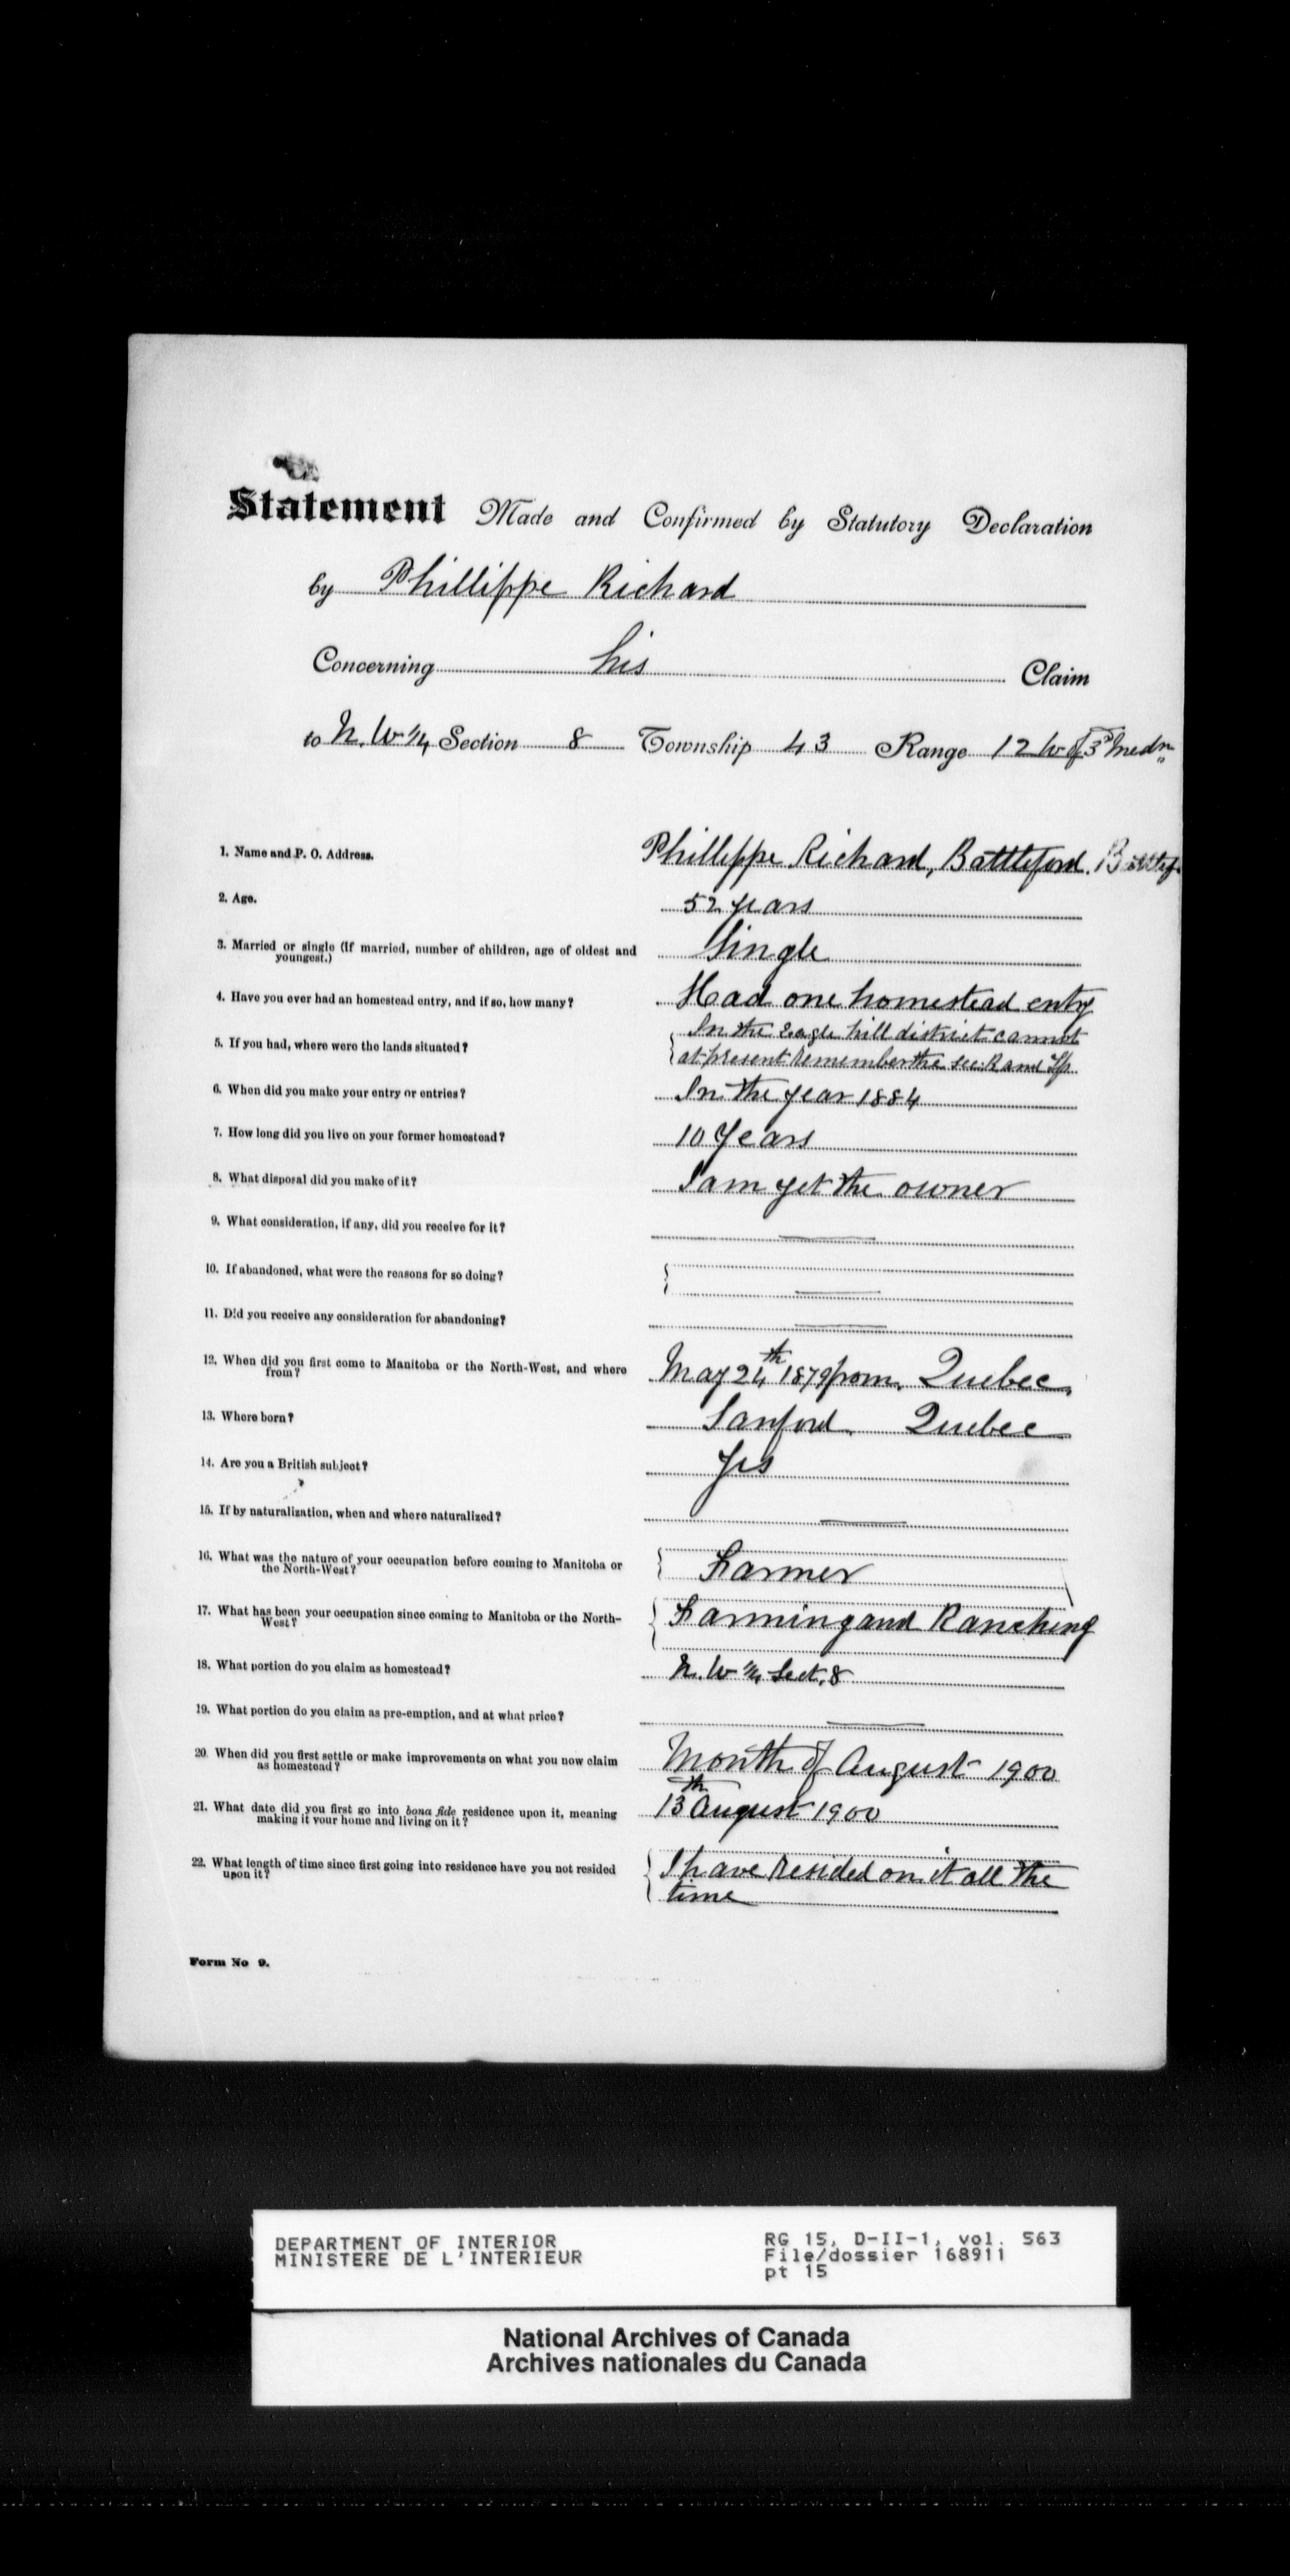 Statement Made and Confirmed by Statutory Declaration
by Phillippe Richard
Concerning his Claim
to N. W 1/4 Section 8 Township 43 Range 12 W of 3rd Medn
1. Name and P. O. Address. Phillippe Richard, Battleford.
2. Age. 52 years
3. Married or single (if married, number of children, age of oldest and Single
youngest.)
4. Have you ever had an homestead entry, and if so, how many? Had one homestead entry
5. If you had, where were the lands situated? In the Eagle hill district cannot
at present remember the sec. R and Tp
6. When did you make your entry or entries? In the year 1884
7. How long did you live on your former homestead? 10 Years
8. What disposal did you make of it? I am yet the owner
9. What consideration, if any, did you receive for it?
10. If abandoned, what were the reasons for so doing?
11. Did you receive any consideration for abandoning?
12. When did you first come to Manitoba or the North-West, and where May 24th 1879 from Quebec
from?
13. Where born? Sanford Quebec
14. Are you a British subject? Yes
15. If by naturalization, when and where naturalized?
16. What was the nature of your occupation before coming to Manitoba or Farmer
the North-West?
17. What has been your occupation since coming to Manitoba or the North- Farming and Ranching
West?
18. What portion do you claim as homestead? N. W 1/4 Sect. 8
19. What portion do you claim as pre-emption, and at what price?
20. When did you first settle or make improvements on what you now claim Month of August 1900
as homestead?
21. What date did you first go into bona fide residence upon it, meaning 13th August 1900
making it your home and living on it?
22. What length of time since first going into residence have you not resided I have resided on it all the
upon it? time
Form No 9.
DEPARTMENT OF INTERIOR RG 15, D-II-1, vol. 563
MINISTERE DE L'INTERIEUR File/dossier 168911
pt 15
National Archives of Canada
Archives nationales du Canada